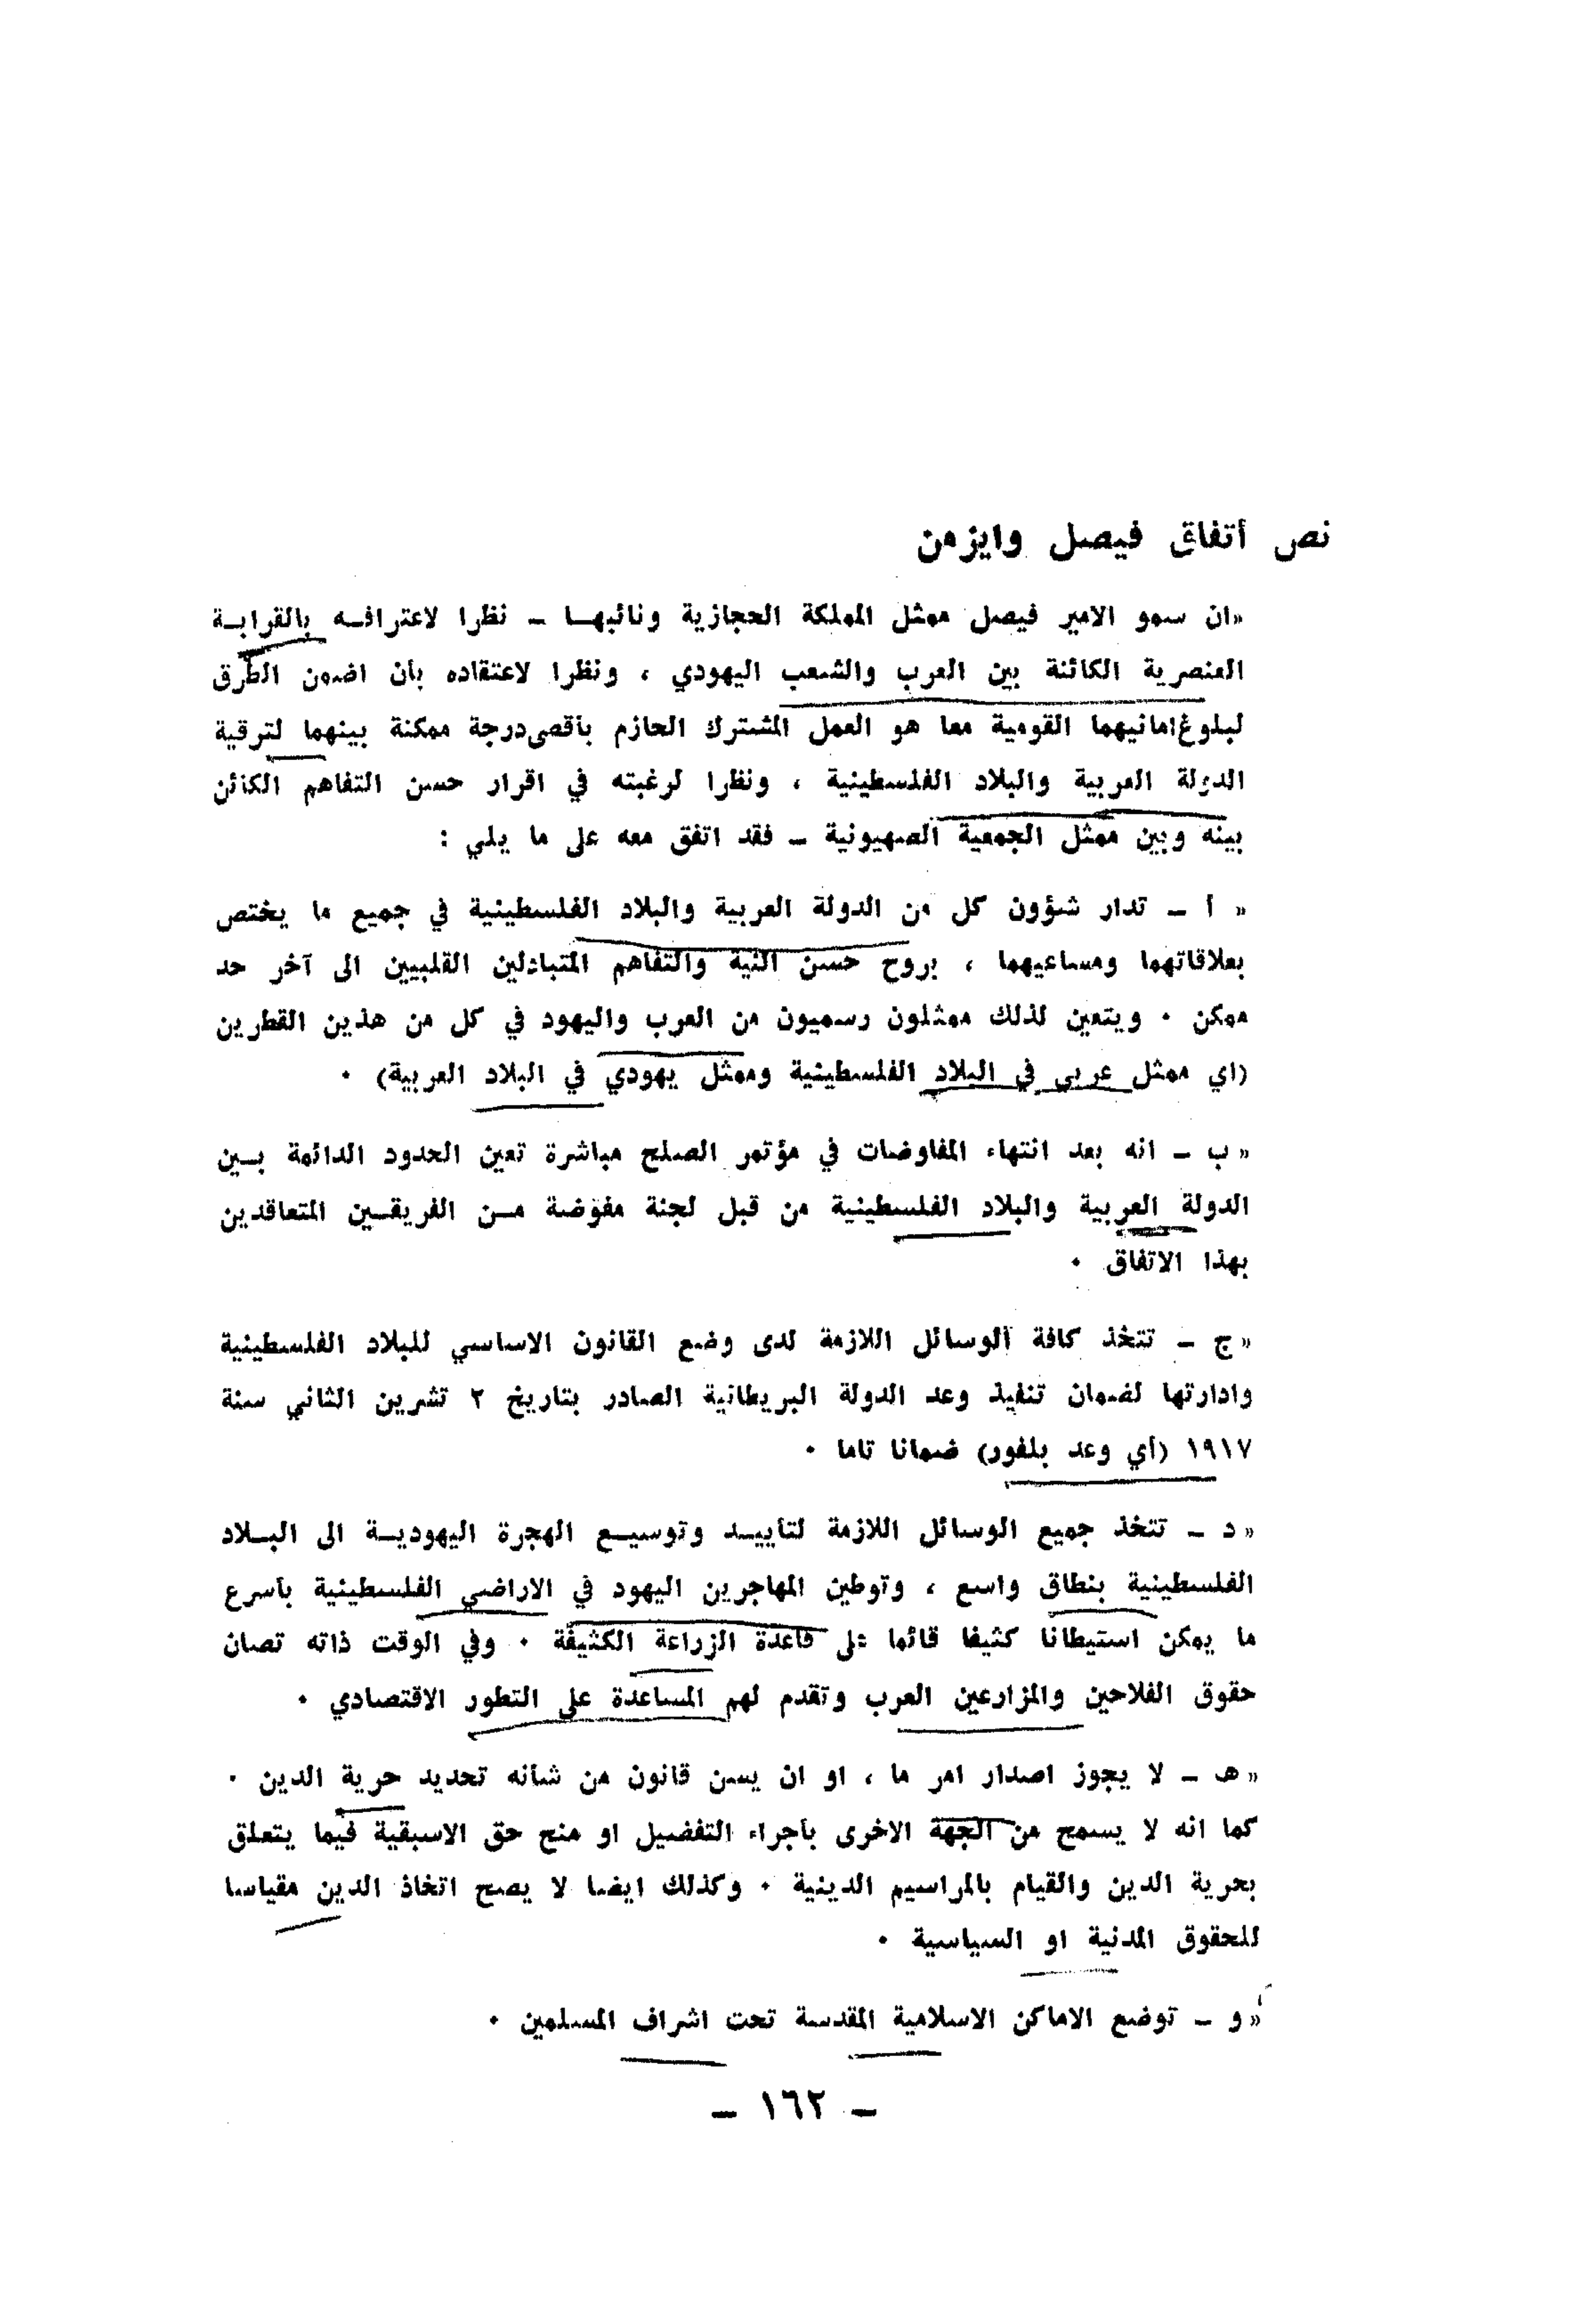 نص أتفاق فيصل وايزمن
«ان سمو الامير فيصل ممثل المملكة الحجازية ونائبهـا ـ نظرا لاعترافـه بالقرابـة
العنصرية الكائنة بين العرب والشعب اليهودي ، ونظرا لاعتقاده بأن اضمن الطرق
لبلوغ امانيهما القومية معا هو العمل المشترك الحازم بأقصى درجة ممكنة بينهما لترقية
الدولة العربية والبلاد الفلسطينية ، ونظرا لرغبته في اقرار حسن التفاهم الكائن
بينه وبين ممثل الجمعية الصهيونية ـ فقد اتفق معه على ما يلي :
« أ ـ تدار شؤون كل من الدولة العربية والبلاد الفلسطينية في جميع ما يختص
بعلاقاتهما ومساعيهما ، بروح حسن النية والتفاهم المتبادلين القلبيين الى آخر حد
ممكن . ويتعين لذلك ممثلون رسميون من العرب واليهود في كل من هذين القطرين
(اي ممثل عربي في البلاد الفلسطينية وممثل يهودي في البلاد العربية) .
« ب ـ انه بعد انتهاء المفاوضات في مؤتمر الصلح مباشرة تعين الحدود الدائمة بـين
الدولة العربية والبلاد الفلسطينية من قبل لجنة مفوضة مـن الفريقـين المتعاقدين
بهذا الاتفاق .
« ج ـ تتخذ كافة الوسائل اللازمة لدى وضع القانون الاساسي للبلاد الفلسطينية
وادارتها لضمان تنفيذ وعد الدولة البريطانية الصادر بتاريخ ٢ تشرين الثاني سنة
١٩١٧ (أي وعد بلفور) ضمانا تاما .
« د ـ تتخذ جميع الوسائل اللازمة لتأييـد وتوسيـع الهجرة اليهوديـة الى البـلاد
الفلسطينية بنطاق واسع ، وتوطين المهاجرين اليهود في الاراضي الفلسطينية بأسرع
ما يمكن استيطانا كثيفا قائما على قاعدة الزراعة الكثيفة . وفي الوقت ذاته تصان
حقوق الفلاحين والمزارعين العرب وتقدم لهم المساعدة على التطور الاقتصادي .
« هـ ـ لا يجوز اصدار امر ما ، او ان يسن قانون من شأنه تحديد حرية الدين .
كما انه لا يسمح من الجهة الاخرى بأجراء التفضيل او منح حق الاسبقية فيما يتعلق
بحرية الدين والقيام بالمراسيم الدينية . وكذلك ايضا لا يصح اتخاذ الدين مقياسا
للحقوق المدنية او السياسية .
« و ـ توضع الاماكن الاسلامية المقدسة تحت اشراف المسلمين .
ـ ١٦٢ ـ